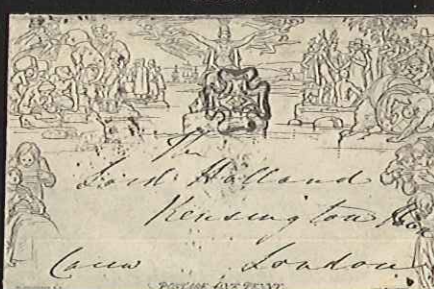 The
Lord Holland
Kensington
London
POSTAGE ONE PENNY